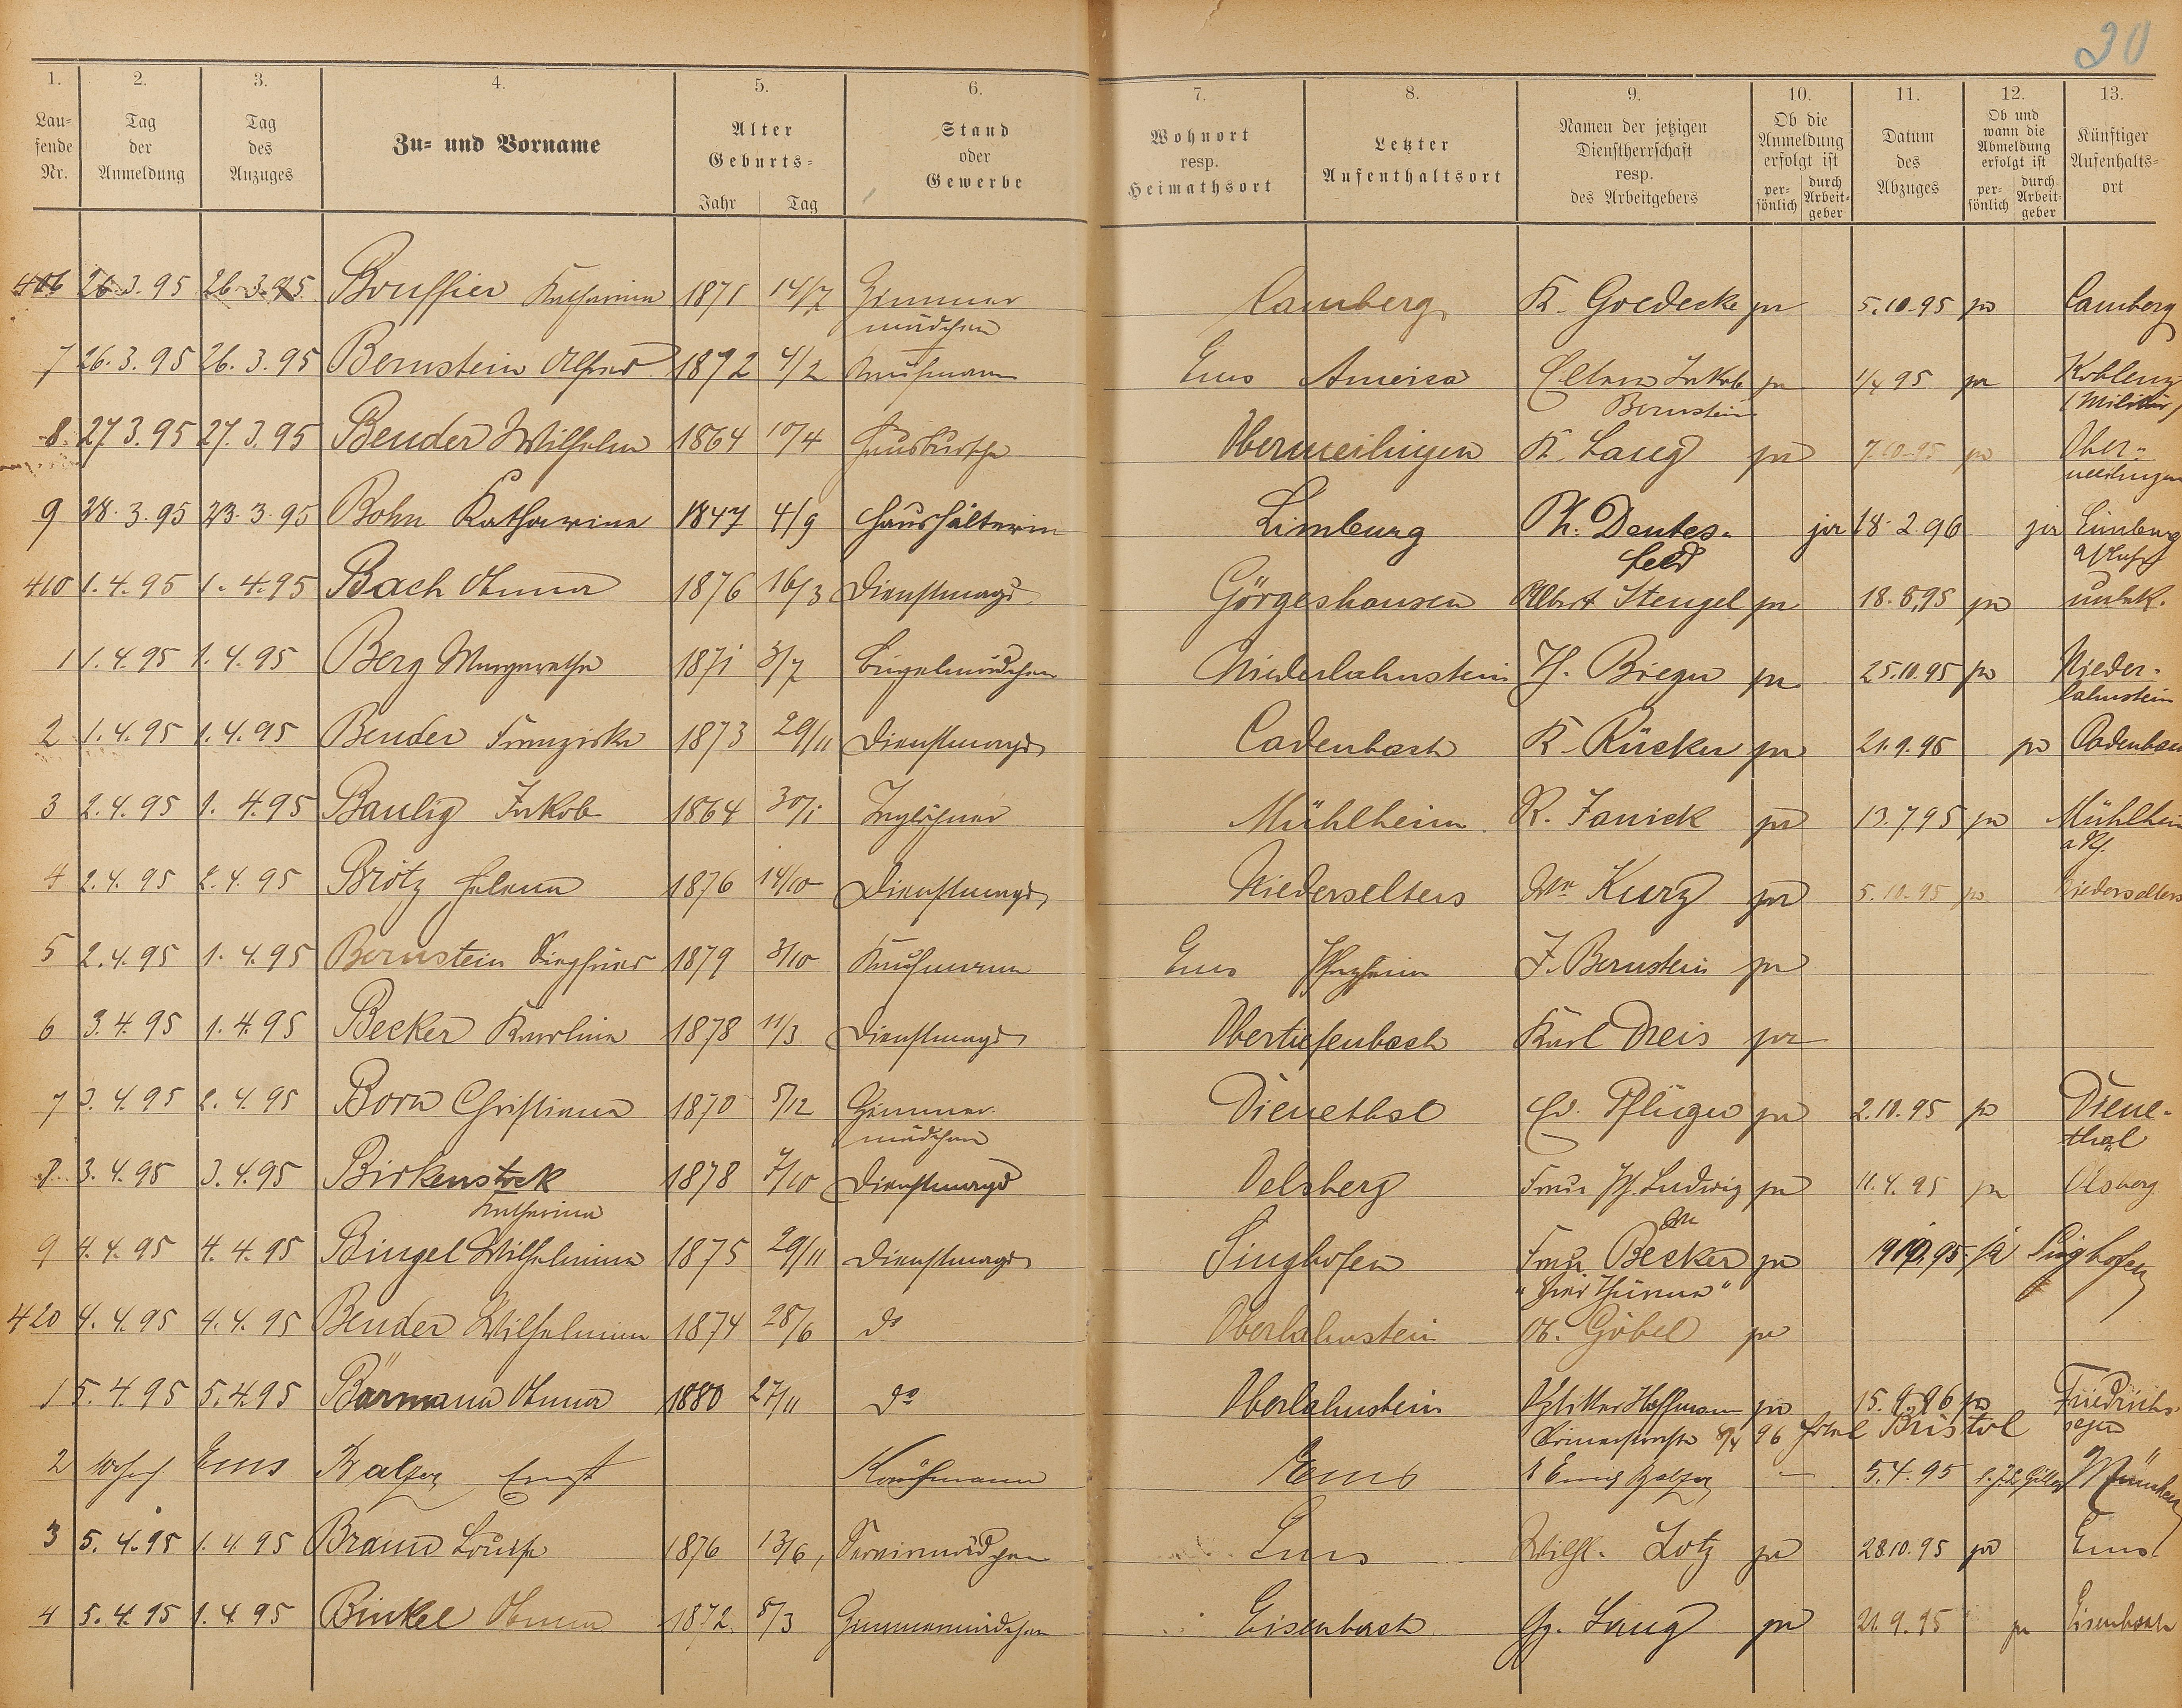 30
1. 2. 3. 4. 5. 6. 7. 8. 9. 10. 11. 12. 13.
Lau-
fende
Nr.
Tag
der
Anmeldung
Tag
des
Anzuges
Zu- und Vorname
Alter
Geburts-
Jahr Tag
Stand
oder
Gewerbe
Wohnort
resp.
Heimathsort
Letzter
Aufenthaltsort
Namen der jetzigen
Dienstherrschaft
resp.
des Arbeitgebers
Ob die
Anmeldung
erfolgt ist
per-
sönlich
durch
Arbeit-
geber
Datum
des
Abzuges
Ob und
wann die
Abmeldung
erfolgt ist
per-
sönlich
durch
Arbeit-
geber
Künftiger
Aufenthalts-
ort
406 26.3.95 26.3.95 Bouffier Katharina 1871 14/7 Zimmer Camberg K. Goedecke ja 5.10.95 ja Camberg
mädchen
7 26.3.95 26.3.95 Bernstein Alfred 1872 4/2 Kaufmann Ems America Eltern Jakob ja 1/4 95 ja Koblenz
Bernstein (Militär)
8. 27.3.95 27.3.95 Bender Wilhelm 1864 10/4 Hausbursche Obermeilingen K. Lang ja 7.10.95 ja Ober-
meilingen
9 28.3.95 23.3.95 Bohn Katharina 1847 4/9 Haushälterin Limburg Ph. Deutes- ja 18.2.96 ja Limburg
feld
410 1.4.95 1.4.95 Bach Anna 1876 16/3 Dienstmagd Görgeshausen Albert Stengel ja 18.8.95 ja unbek.
1 1.4.95 1.4.95 Berg Margaretha 1871 3/7 Bügelmädchen Niederlahnstein H. Bieger ja 25.10.95 ja Nieder-
lahnstein
2 1.4.95 1.4.95 Bender Franziska 1873 29/11 Dienstmagd Cadenbach K. Rücker ja 21.9.95 ja Cadenbach
3 2.4.95 1.4.95 Baulig Jakob 1864 30/1 Taglöhner Mühlheim R. Janick ja 13.7.95 ja Mühlheim
4 2.4.95 2.4.95 Brötz Helena 1876 14/10 Dienstmagd Niederselters Wm Kurz ja 5.10.95 ja Niederselters
5 2.4.95 1.4.95 Bernstein Siegfried 1879 3/10 Kaufmann Ems Pforzheim J. Bernstein ja
6 3.4.95 1.4.95 Becker Karlina 1878 11/3 Dienstmagd Obertiefenbach Karl Dreis ja
7 3.4.95 2.4.95 Born Christiana 1870 5/12 Zimmer- Dienethal Ed. Pflüger ja 2.10.95 ja Diene-
mädchen thal
8 3.4.95 3.4.95 Birkenstock 1878 7/10 Dienstmagd Oelsberg Frau Ph. Ludwig ja 11.4.95 ja Olsberg
Katharina
9 4.4.95 4.4.95 Bingel Wilhelmina 1875 29/11 Dienstmagd Singhofen Frau Becker ja 19.10.95 ja Singhofen
"Vier Thürme"
420 4.4.95 4.4.95 Bender Wilhelmina 1874 28/6 do Oberlahnstein A. Göbel ja
1 5.4.95 5.4.95 Bärmann Anna 1880 27/11 do Oberlahnstein Hoffmann ja 15.9.96 ja Friedrichs-
8/4 96 Hotel Bristol segen
2 Ems Balzer Ernst Kaufmann Ems Balzer — 5.4.95 München
3 5.4.95 1.4.95 Braun Louise 1876 13/6 Servirmädchen Ems Wilh. Lotz ja 28.10.95 ja Ems
4 5.4.95 1.4.95 Binkel Anna 1872 5/3 Zimmermädchen Eisenbach Gg. Lang ja 21.9.95 ja Eisenbach